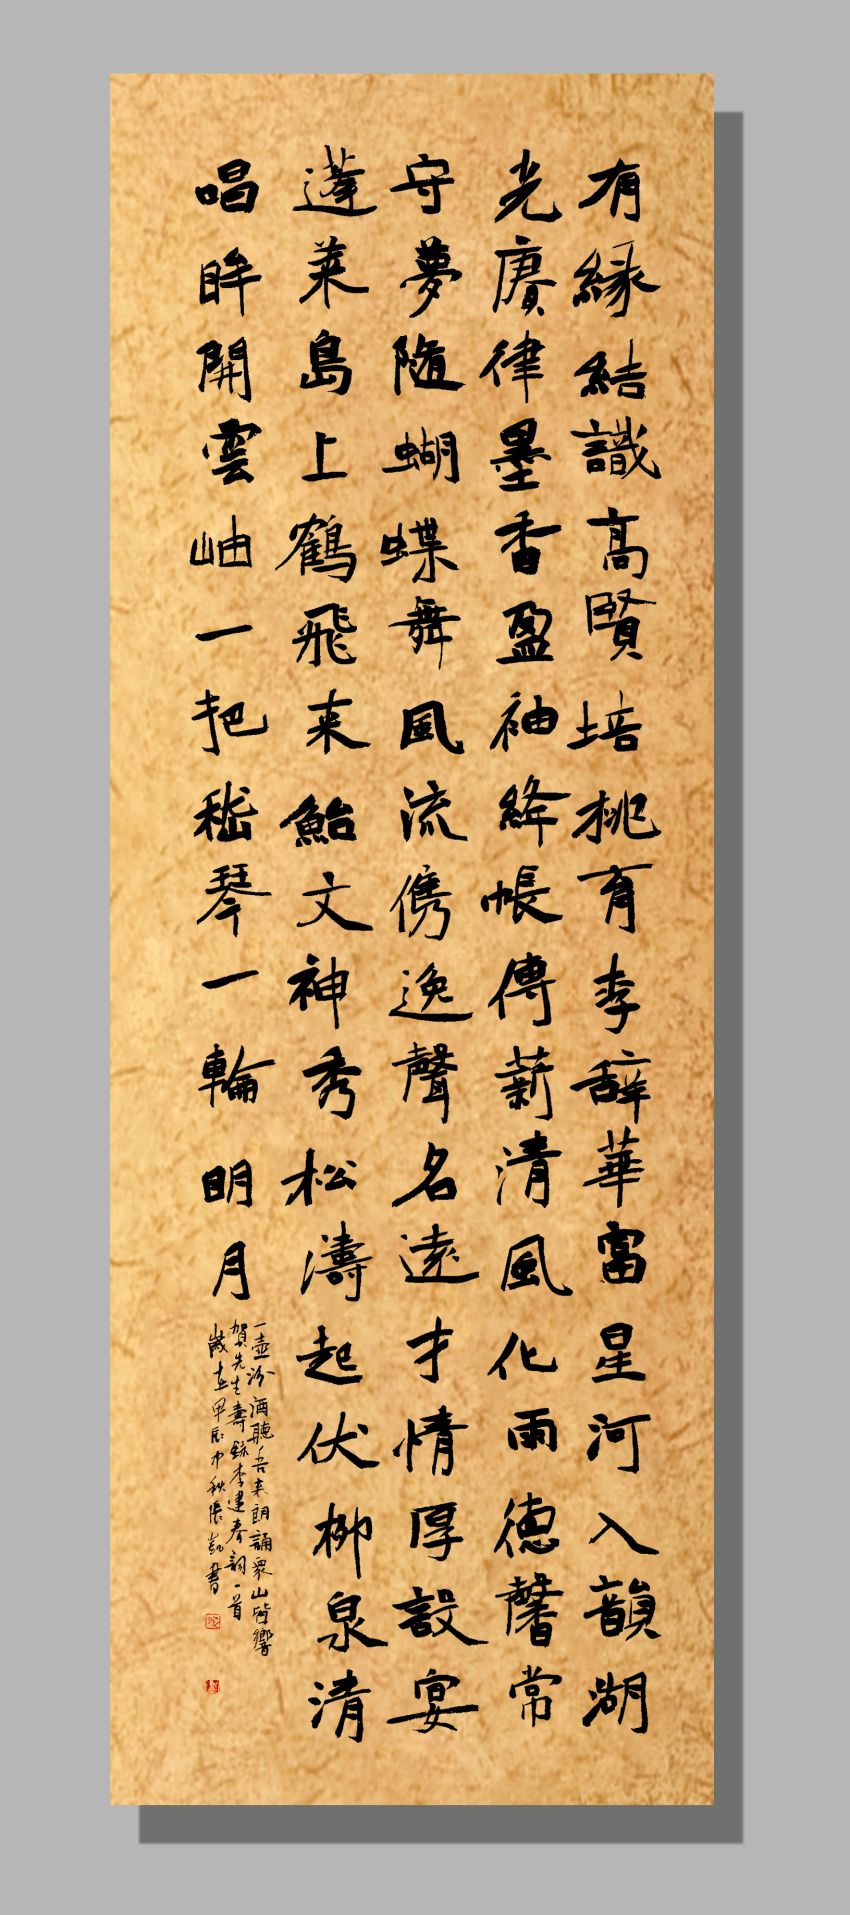 有緣結識高賢培桃育李辭華富星河入韻湖
光賡律墨香盈袖絳帳傳薪清風化雨德馨常
守夢隨蝴蝶舞風流儁逸聲名遠才情厚設宴
蓬萊島上鶴飛来鮐文神秀松濤起伏柳泉清
唱眸開雲岫一把嵇琴一輪明月
一壺汾酒聽吾来朗誦衆山皆響
賀先生壽錄李建春詞一首
歲在甲辰中秋張凱書